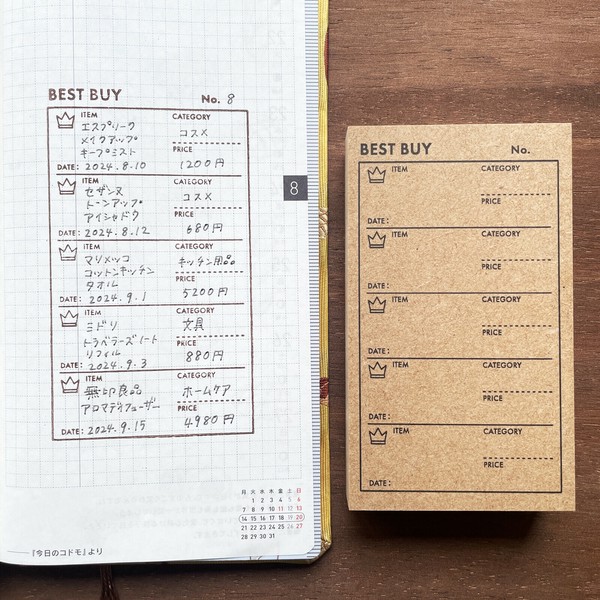 BEST BUY No. 8
ITEM CATEGORY
エスプリーク コスメ
メイクアップ
キープミスト PRICE
DATE: 2024.8.10 1200円
ITEM CATEGORY
セザンヌ コスメ
トーンアップ PRICE
アイシャドウ
DATE: 2024.8.12 680円
ITEM CATEGORY
マリメッコ キッチン用品
コットンキッチン PRICE
タオル
DATE: 2024.9.1 5200円
ITEM CATEGORY
ミドリ 文具
トラベラーズノート PRICE
リフィル
DATE: 2024.9.3 880円
ITEM CATEGORY
無印良品 ホームケア
アロマディフューザー PRICE
DATE: 2024.9.15 4980円
8
月 火 水 木 金 土 日
1 2 3 4 5 6
7 8 9 10 11 12 13
14 15 16 17 18 19 20
21 22 23 24 25 26 27
28 29 30 31
『今日のコドモ』より
BEST BUY No.
ITEM CATEGORY
PRICE
DATE:
ITEM CATEGORY
PRICE
DATE:
ITEM CATEGORY
PRICE
DATE:
ITEM CATEGORY
PRICE
DATE:
ITEM CATEGORY
PRICE
DATE: